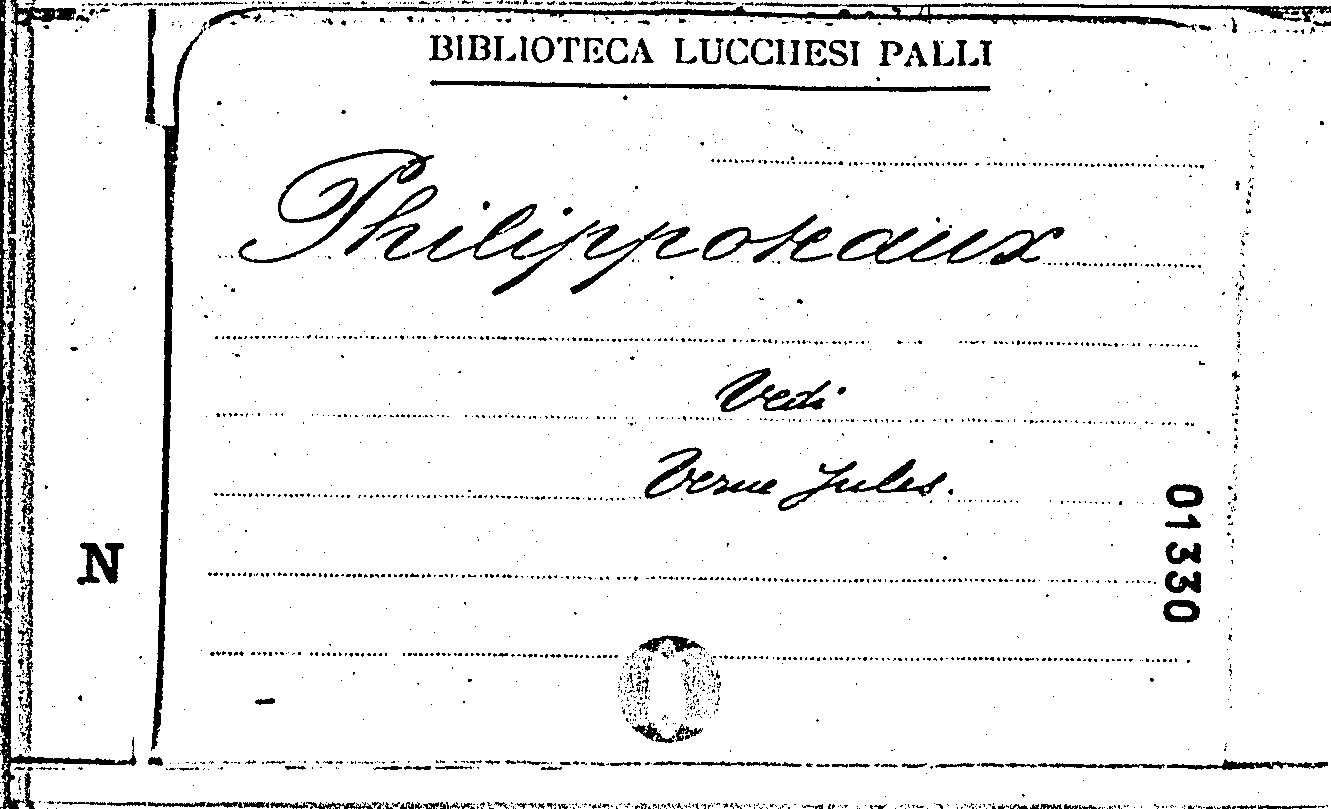 BIBLIOTECA LUCCHESI PALLI
Philippoteaux
Vedi
Verne Jules.
01330
N